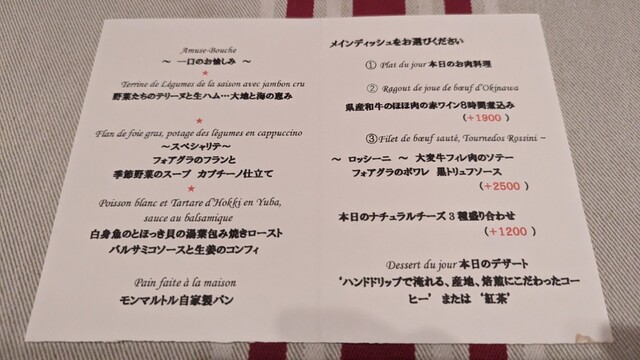 Amuse-Bouche
～ 一口のお愉しみ ～
★
Terrine de Légumes de la saison avec jambon cru
野菜たちのテリーヌと生ハム…大地と海の恵み
★
Flan de foie gras, potage des légumes en cappuccino
～スペシャリテ～
フォアグラのフランと
季節野菜のスープ カプチーノ仕立て
★
Poisson blanc et Tartare d'Hokki en Yuba,
sauce au balsamique
白身魚のとほっき貝の湯葉包み焼きロースト
バルサミコソースと生姜のコンフィ
Pain faite à la maison
モンマルトル自家製パン
メインディッシュをお選びください
① Plat du jour 本日のお肉料理
② Ragout de joue de bœuf d'Okinawa
県産和牛のほほ肉の赤ワイン8時間煮込み
(+1900 )
③Filet de bœuf sauté, Tournedos Rossini ~
～ ロッシーニ ～ 大変牛フィレ肉のソテー
フォアグラのポワレ 黒トリュフソース
(+2500 )
本日のナチュラルチーズ 3 種盛り合わせ
(+1200 )
Dessert du jour 本日のデザート
‘ハンドドリップで淹れる、産地、焙煎にこだわったコー
ヒー’ または ‘紅茶’